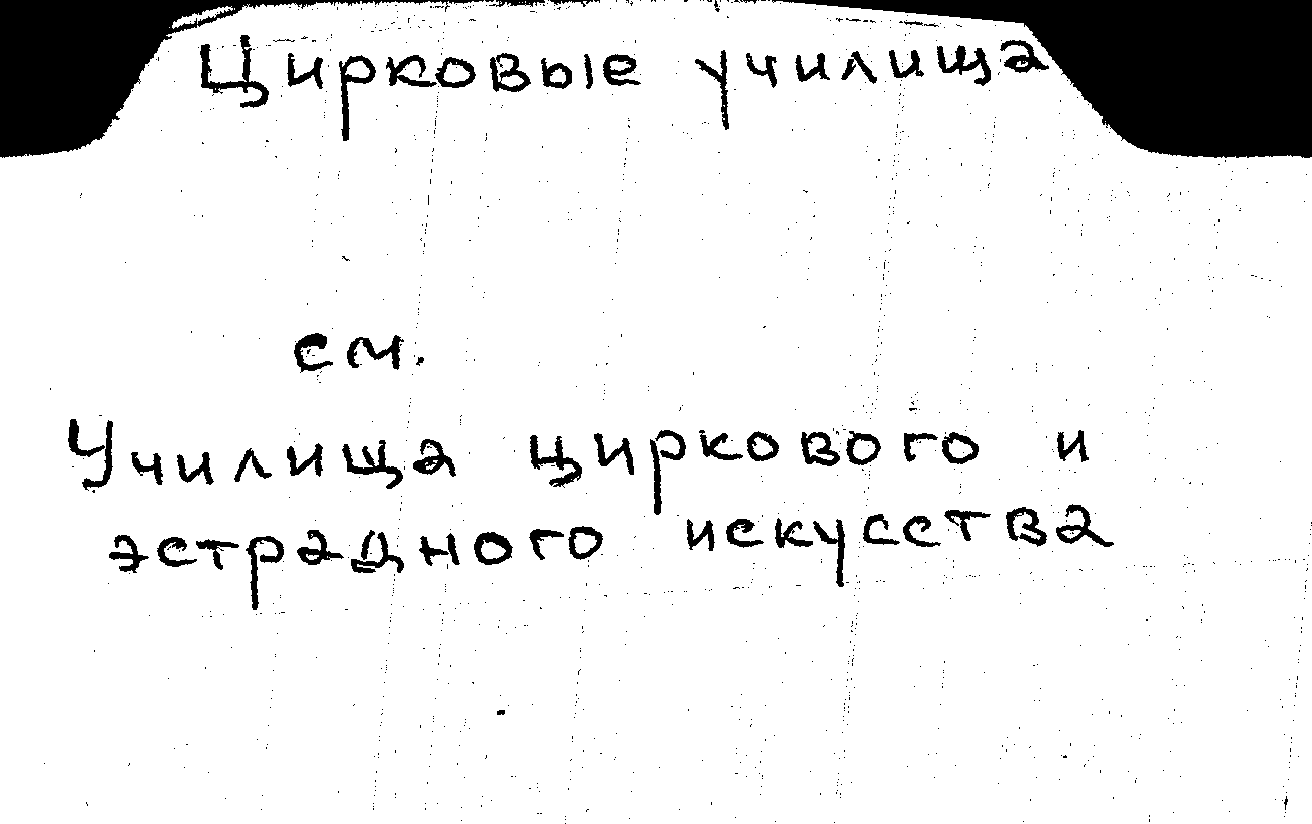 Цирковые училища
см.
Училища циркового и
эстрадного искусства